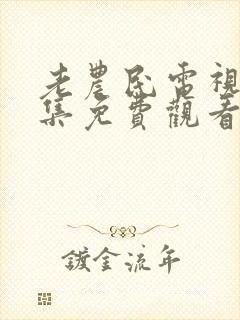 老農民電視
集免費觀看
鍍金流年